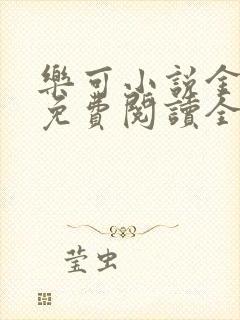 樂可小說全
免費閱讀全
莹虫